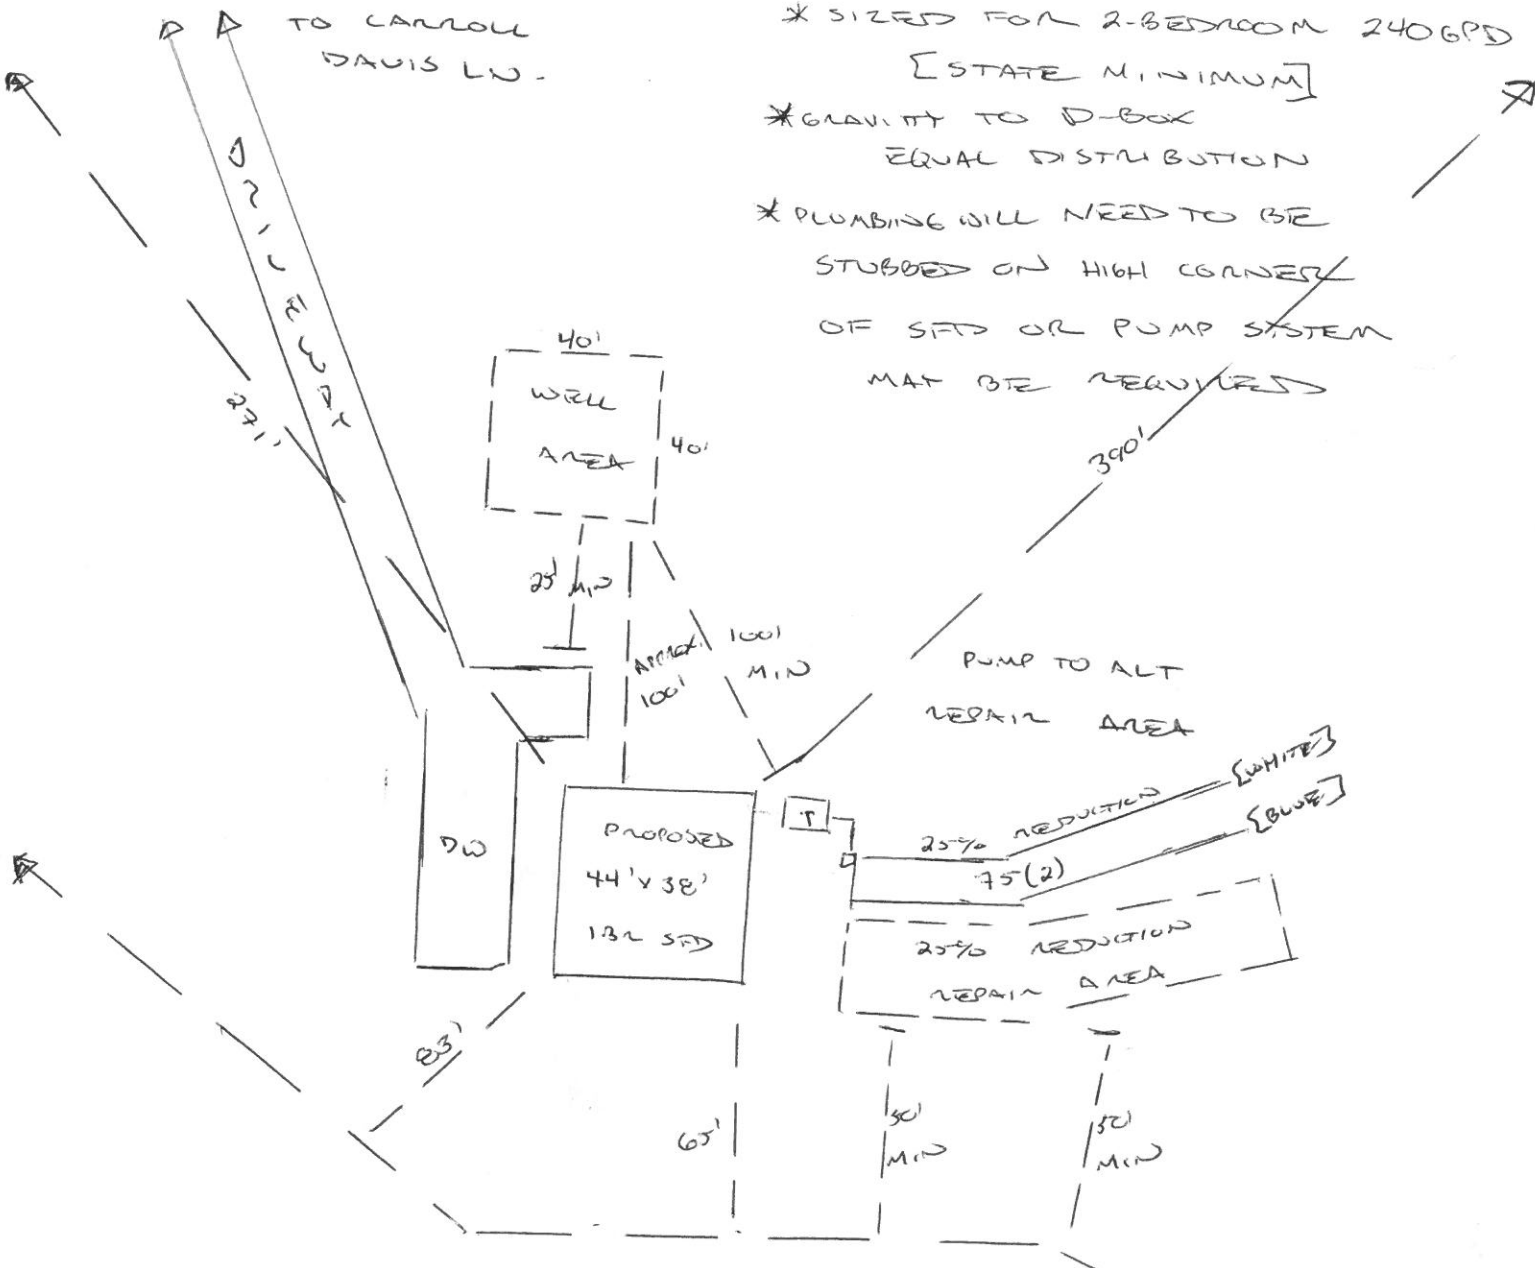 TO CARROLL
DAVIS LN.
* SIZED FOR 2-BEDROOM 240GPD
[STATE MINIMUM]
* GRAVITY TO D-BOX
EQUAL DISTRIBUTION
* PLUMBING WILL NEED TO BE
STUBBED ON HIGH CORNER
OF SFD OR PUMP SYSTEM
MAY BE REQUIRED
DRIVEWAY
271'
40'
WELL
AREA
40'
390'
25' MIN
APPROX.
100'
100'
MIN
PUMP TO ALT
REPAIR AREA
[WHITE]
[BLUE]
T
25% REDUCTION
75(2)
DW
PROPOSED
44'x38'
1BR SFD
25% REDUCTION
REPAIR AREA
83'
65'
50'
MIN
50'
MIN